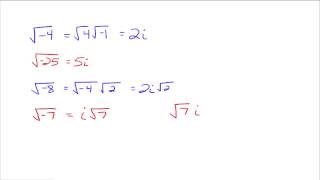 √-4 = √4 √-1 = 2i
√-25 = 5i
√-8 = √-4 √2 = 2i√2
√-7 = i√7 √7 i